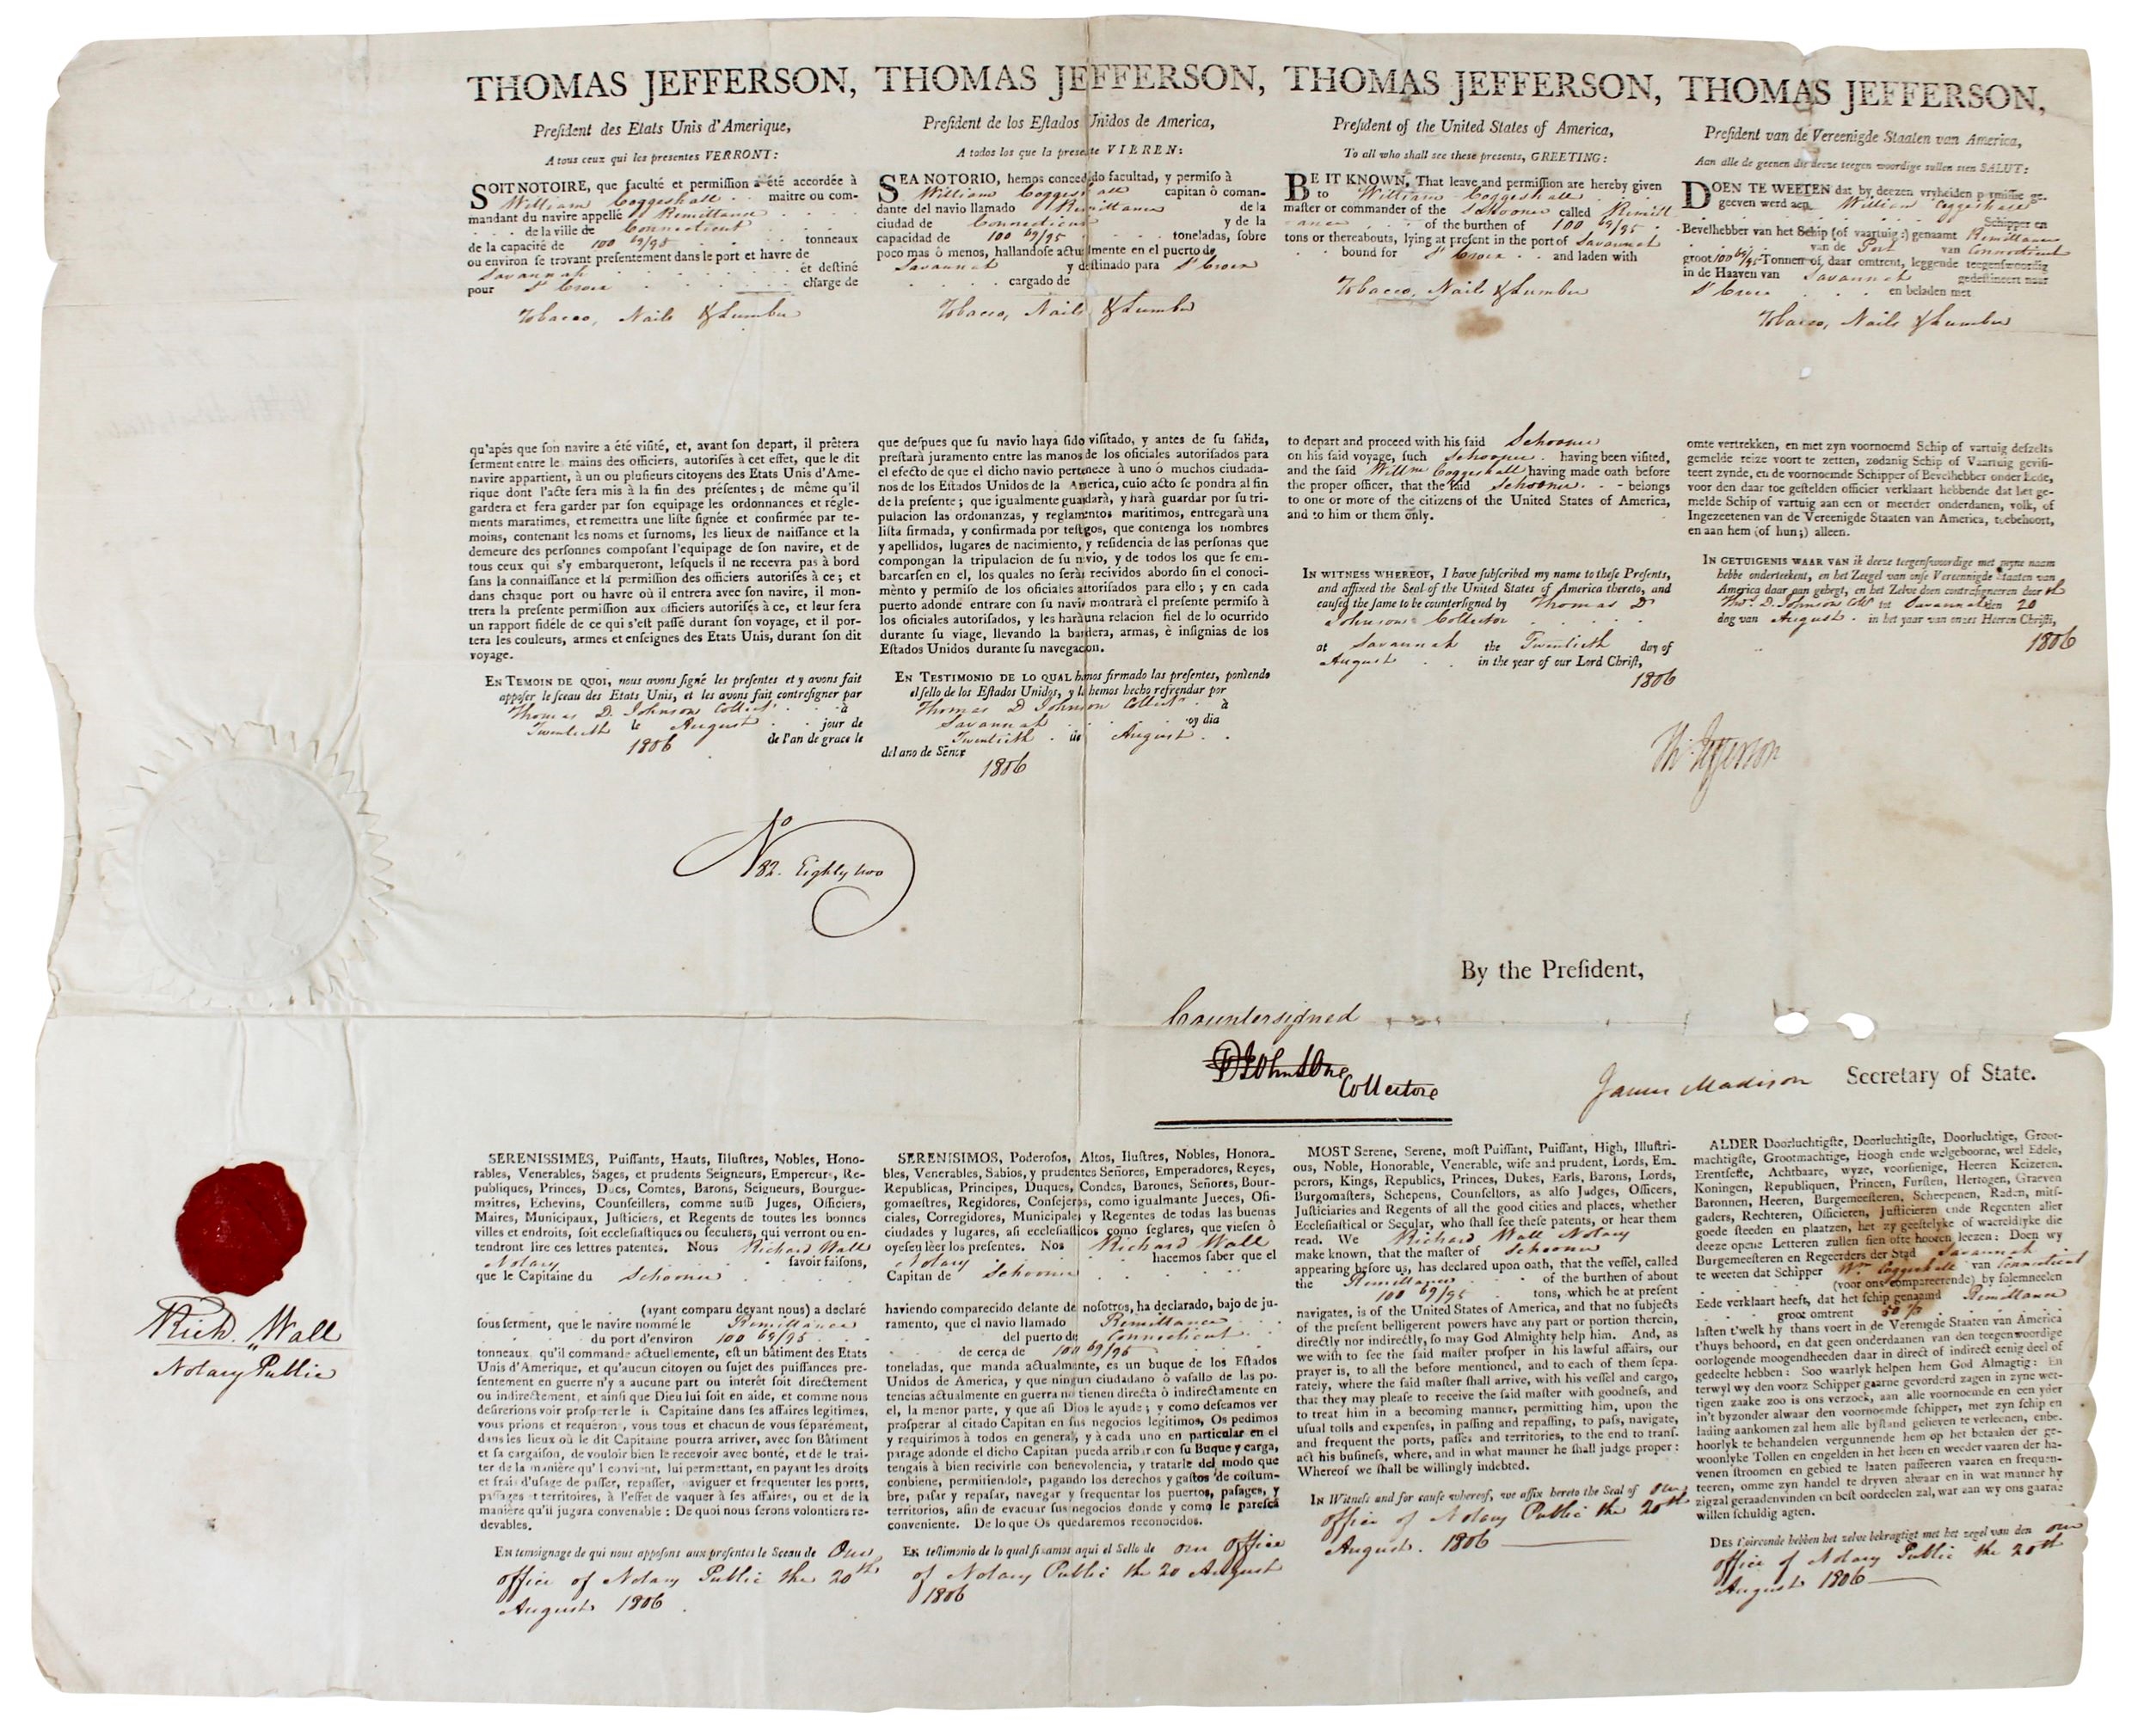 THOMAS JEFFERSON,
President des Etats Unis d'Amerique,
A tous ceux qui les presentes VERRONT:
SOIT NOTOIRE, que faculté et permission a été accordée à
William Coggeshall maitre ou com-
mandant du navire appellé Remittance
de la ville de Connecticut
de la capacité de 100 69/95 tonneaux
ou environ se trovant presentement dans le port et havre de
Savannah et destiné
pour St Croix charge de
Tobacco, Nails & Lumber
qu'apès que son navire a été visité, et, avant son depart, il prêtera
serment entre les mains des officiers, autorisés à cet effet, que le dit
navire appartient, à un ou plusieurs citoyens des Etats Unis d'Ame-
rique dont l'acte sera mis à la fin des présentes; de même qu'il
gardera et fera garder par son equipage les ordonnances et régle-
ments maratimes, et remettra une liste signée et confirmée par te-
moins, contenant les noms et surnoms, les lieux de naissance et la
demeure des personnes composant l'equipage de son navire, et de
tous ceux qui s'y embarqueront, lesquels il ne recevra pas à bord
sans la connaissance et la permission des officiers autorisés à ce; et
dans chaque port ou havre où il entrera avec son navire, il mon-
trera la presente permission aux officiers autorisés à ce, et leur fera
un rapport fidéle de ce qui s'est passé durant son voyage, et il por-
tera les couleurs, armes et enseignes des Etats Unis, durant son dit
voyage.
EN TEMOIN DE QUOI, nous avons signé les presentes et y avons fait
apposer le sceau des Etats Unis, et les avons fait contresigner par
Thomas D. Johnson Collectr à
Twentieth le August jour de
1806 de l'an de grace le
THOMAS JEFFERSON,
President de los Estados Unidos de America,
A todos los que la presente VIEREN:
SEA NOTORIO, hemos concedido facultad, y permiso à
William Coggeshall capitan ò coman-
dante del navio llamado Remittance de la
ciudad de Connecticut y de la
capacidad de 100 69/95 toneladas, sobre
poco mas ò menos, hallandose actualmente en el puerto de
Savannah y destinado para St Croix
cargado de
Tobacco, Nails & Lumber
que despues que su navio haya sido visitado, y antes de su salida,
prestarà juramento entre las manos de los oficiales autorisados para
el efecto de que el dicho navio pertenece à uno ó muchos ciudada-
nos de los Estados Unidos de la America, cuio acto se pondra al fin
de la presente; que igualmente guardarà, y harà guardar por su tri-
pulacion las ordonanzas, y reglamentos maritimos, entregarà una
lista firmada, y confirmada por testigos, que contenga los nombres
y apellidos, lugares de nacimiento, y residencia de las personas que
compongan la tripulacion de su navio, y de todos los que se em-
barcarsen en el, los quales no seràn recividos abordo sin el conoci-
mènto y permiso de los oficiales autorisados para ello; y en cada
puerto adonde entrare con su navio montrarà el presente permiso à
los oficiales autorisados, y les harà una relacion fiel de lo ocurrido
durante su viage, llevando la bandera, armas, è insignias de los
Estados Unidos durante su navegacion.
EN TESTIMONIO DE LO QUAL hemos firmado las presentes, poniendo
el sello de los Estados Unidos, y las hemos hecho refrendar por
Thomas D Johnson Collectr à
Savannah oy dia
Twentieth de August
del ano de Senor
1806
THOMAS JEFFERSON,
President of the United States of America,
To all who shall see these presents, GREETING:
BE IT KNOWN, That leave and permission are hereby given
to William Coggeshall
master or commander of the Schooner called Remitt
ance of the burthen of 100 69/95
tons or thereabouts, lying at present in the port of Savannah
bound for St Croix and laden with
Tobacco, Nails & Lumber
to depart and proceed with his said Schooner
on his said voyage, such Schooner having been visited,
and the said Willm Coggeshall having made oath before
the proper officer, that the said Schooner belongs
to one or more of the citizens of the United States of America,
and to him or them only.
IN WITNESS WHEREOF, I have subscribed my name to these Presents,
and affixed the Seal of the United States of America thereto, and
caused the same to be countersigned by Thomas D
Johnson Collector
at Savannah the Twentieth day of
August in the year of our Lord Christ,
1806
THOMAS JEFFERSON,
President van de Vereenigde Staaten van America,
Aan alle de geenen die deeze teegen woordige zullen zien SALUT:
DOEN TE WEETEN dat by deezen vryheiden permissie ge-
geeven werd aen William Coggeshall
Schipper en
Bevelhebber van het Schip (of vaartuig:) genaamt Remittance
van de Port van Connecticut
groot 100 69/95 Tonnen of, daar omtrent, leggende teegenswoordig
in de Haaven van Savannah gedestineert naar
St Croix en beladen met
Tobacco, Nails & Lumber
omte vertrekken, en met zyn voornoemd Schip of vartuig deszelts
gemelde reize voort te zetten, zodanig Schip of Vaartuig gevisi-
teert zynde, en de voornoemde Schipper of Bevelhebber onder Eede,
voor den daar toe gestelden officier verklaart hebbende dat het ge-
melde Schip of vartuig aan een or meerder onderdanen, volk, of
Ingezeetenen van de Vereenigde Staaten van America, toebehoort,
en aan hem (of hun;) alleen.
IN GETUIGENIS WAAR VAN ik deeze teegenswoordige met myne naam
hebbe onderteekent, en het Zeegel van onse Vereenigde Staaten van
America daar aan gehegt, en het Zelve doen contrasigneren door
Thos. D. Johnson Collr tot Savannah den 20
dag van August in het yaar van onzes Heeren Christi,
1806
Th: Jefferson
No 82. Eighty two
By the President,
Countersigned
Collector
James Madison Secretary of State.
SERENISSIMES, Puissants, Hauts, Illustres, Nobles, Hono-
rables, Venerables, Sages, et prudents Seigneurs, Empereurs, Re-
publiques, Princes, Ducs, Comtes, Barons, Seigneurs, Bourgue-
maitres, Echevins, Counseillers, comme aussi Juges, Officiers,
Maires, Municipaux, Justiciers, et Regents de toutes les bonnes
villes et endroits, soit ecclesiastiques ou seculiers, qui verront ou en-
tendront lire ces lettres patentes. Nous Richard Wall
Notary savoir faisons,
que le Capitaine du Schooner
(ayant comparu devant nous) a declaré
sous serment, que le navire nommé le Remittance
du port d'environ 100 69/95
tonneaux, qu'il commande actuellemente, est un bâtiment des Etats
Unis d'Amerique, et qu'aucun citoyen ou sujet des puissances pre-
sentement en guerre n'y a aucune part ou interêt soit directement
ou indirectement, et ainsi que Dieu lui soit en aide, et comme nous
desirerions voir prosperer le dit Capitaine dans ses affaires legitimes,
vous prions et requérons, vous tous et chacun de vous séparément,
dans les lieux où le dit Capitaine pourra arriver, avec son Bâtiment
et sa cargaison, de vouloir bien le recevoir avec bonté, et de le trai-
ter de la manière qu'il convient, lui permettant, en payant les droits
et frais d'usage de passer, repasser, naviguer et frequenter les ports,
passages et territoires, à l'effet de vaquer à ses affaires, ou et de la
manière qu'il jugera convenable: De quoi nous serons volontiers re-
devables.
En temoignage de qui nous apposons aux presentes le Sceau de Our
office of Notary Public the 20th
August 1806
SERENISIMOS, Poderosos, Altos, Ilustres, Nobles, Honora-
bles, Venerables, Sabios, y prudentes Señores, Emperadores, Reyes,
Republicas, Principes, Duques, Condes, Barones, Señores, Bour-
gomaestres, Regidores, Consejeros, como igualmante Jueces, Ofi-
ciales, Corregidores, Municipales y Regentes de todas las buenas
ciudades y lugares, asi ecclesiasticos como seglares, que viesen ò
oyesen lèer los presentes. Nos Richard Wall
Notary hacemos saber que el
Capitan de Schooner
haviendo comparecido delante de nosotros, ha declarado, bajo de ju-
ramento, que el navio llamado Remittance
del puerto de Connecticut
de cerca de 100 69/95
toneladas, que manda actualmante, es un buque de los Estados
Unidos de America, y que ningun ciudadano ò vasallo de las po-
tencias actualmente en guerra no tienen directa ò indirectamente en
el, la menor parte, y que asi Dios le ayude; y como deseamos ver
prosperar al citado Capitan en sus negocios legitimos, Os pedimos
y requirimos à todos en general, y à cada uno en particular en el
parage adonde el dicho Capitan pueda arribar con su Buque y carga,
tengais à bien recivirle con benevolencia, y tratarle del modo que
conbiene, permitiendole, pagando los derechos y gastos de costum-
bre, pasar y repasar, navegar y frequentar los puertos, pasages, y
territorios, asin de evacuar sus negocios donde y como le paresca
conveniente. De lo que Os quedaremos reconocidos.
En testimonio de lo qual fixamos aqui el Sello de our office
of Notary Public the 20 August
1806
MOST Serene, Serene, most Puissant, Puissant, High, Illustri-
ous, Noble, Honorable, Venerable, wise and prudent, Lords, Em-
perors, Kings, Republics, Princes, Dukes, Earls, Barons, Lords,
Burgomasters, Schepens, Counsellors, as also Judges, Officers,
Justiciaries and Regents of all the good cities and places, whether
Ecclesiastical or Secular, who shall see these patents, or hear them
read. We Richard Wall Notary
make known, that the master of Schooner
appearing before us, has declared upon oath, that the vessel, called
the Remittance of the burthen of about
100 69/95 tons, which he at present
navigates, is of the United States of America, and that no subjects
of the present belligerent powers have any part or portion therein,
directly nor indirectly, so may God Almighty help him. And, as
we wish to see the said master prosper in his lawful affairs, our
prayer is, to all the before mentioned, and to each of them sepa-
rately, where the said master shall arrive, with his vessel and cargo,
that they may please to receive the said master with goodness, and
to treat him in a becoming manner, permitting him, upon the
usual tolls and expenses, in passing and repassing, to pass, navigate,
and frequent the ports, passes and territories, to the end to trans-
act his business, where, and in what manner he shall judge proper:
Whereof we shall be willingly indebted.
In Witness and for cause whereof, we affix hereto the Seal of our
office of Notary Public the 20th
August. 1806
ALDER Doorluchtigste, Doorluchtigste, Doorluchtige, Groot-
machtigste, Grootmachtige, Hoogh ende welgeboorne, wel Edele,
Erentfeste, Achtbaare, wyze, voorsienige, Heeren Keizeren.
Koningen, Republiquen, Princen, Fursten, Hertogen, Graeven
Baronnen, Heeren, Burgemeesteren, Scheepenen, Raden, mits-
gaders, Rechteren, Officieren, Justicieren ende Regenten aller
goede steeden en plaatzen, het zy geestelyke of waereldlyke die
deeze opene Letteren zullen sien ofte hooren leezen: Doen wy
Burgemeesteren en Regeerders der Stad Savannah
te weeten dat Schipper Wm Coggeshall van Connecticut
(voor ons compareerende) by solemneelen
Eede verklaart heeft, dat het schip genaamd Remittance
groot omtrent
lasten t'welk hy thans voert in de Verenigde Staaten van America
t'huys behoord, en dat geen onderdaanen van den teegenwoordige
oorlogende moogendheeden daar in direct of indirect eenig deel of
gedeelte hebben: Soo waarlyk helpen hem God Almagtig: En
terwyl wy den voorz Schipper gaarne gevorderd zagen in zyne wet-
tigen zaake zoo is ons verzoek, aan alle voornoemde en een yder
in't byzonder alwaar den voornoemde schipper, met zyn schip en
lading aankomen zal hem alle bystand gelieven te verleenen, enbe-
hoorlyk te behandelen vergunnende hem op het betaalen der ge-
woonlyke Tollen en engelden in het heen en weeder vaaren der ha-
venen stroomen en gebied te laaten passeeren vaaren en frequen-
teeren, omme zyn handel te dryven alwaar en in wat manner hy
zigzal geraadenvinden en best oordeelen zal, war aan wy ons gaarne
willen schuldig agten.
Des t'oirconde hebben het zelve bekragtigt met het zegel van den our
office of Notary Public the 20th
August 1806
Rich. Wall
Notary Public